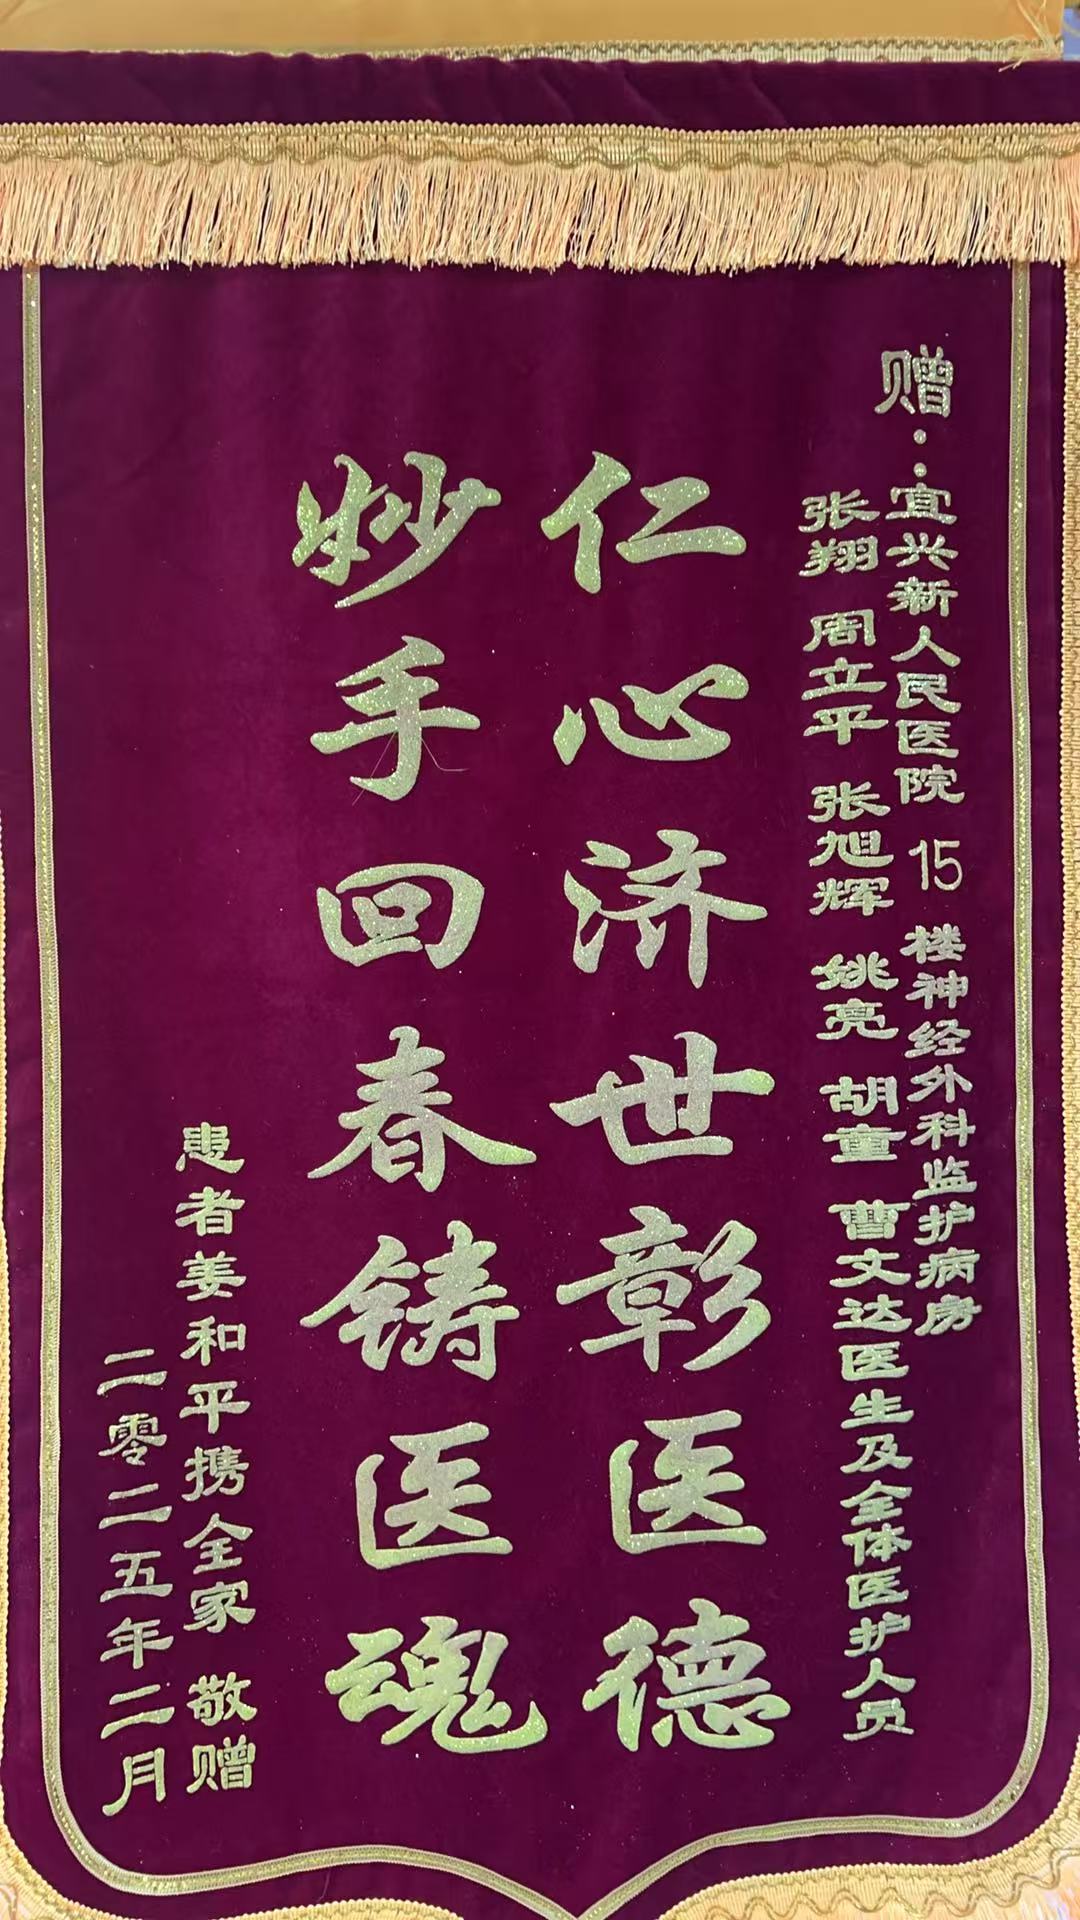 赠：宜兴新人民医院 15 楼神经外科监护病房
张翔 周立平 张旭辉 姚亮 胡童 曹文达医生及全体医护人员
仁心济世彰医德
妙手回春铸医魂
患者姜和平携全家 敬赠
二零二五年二月